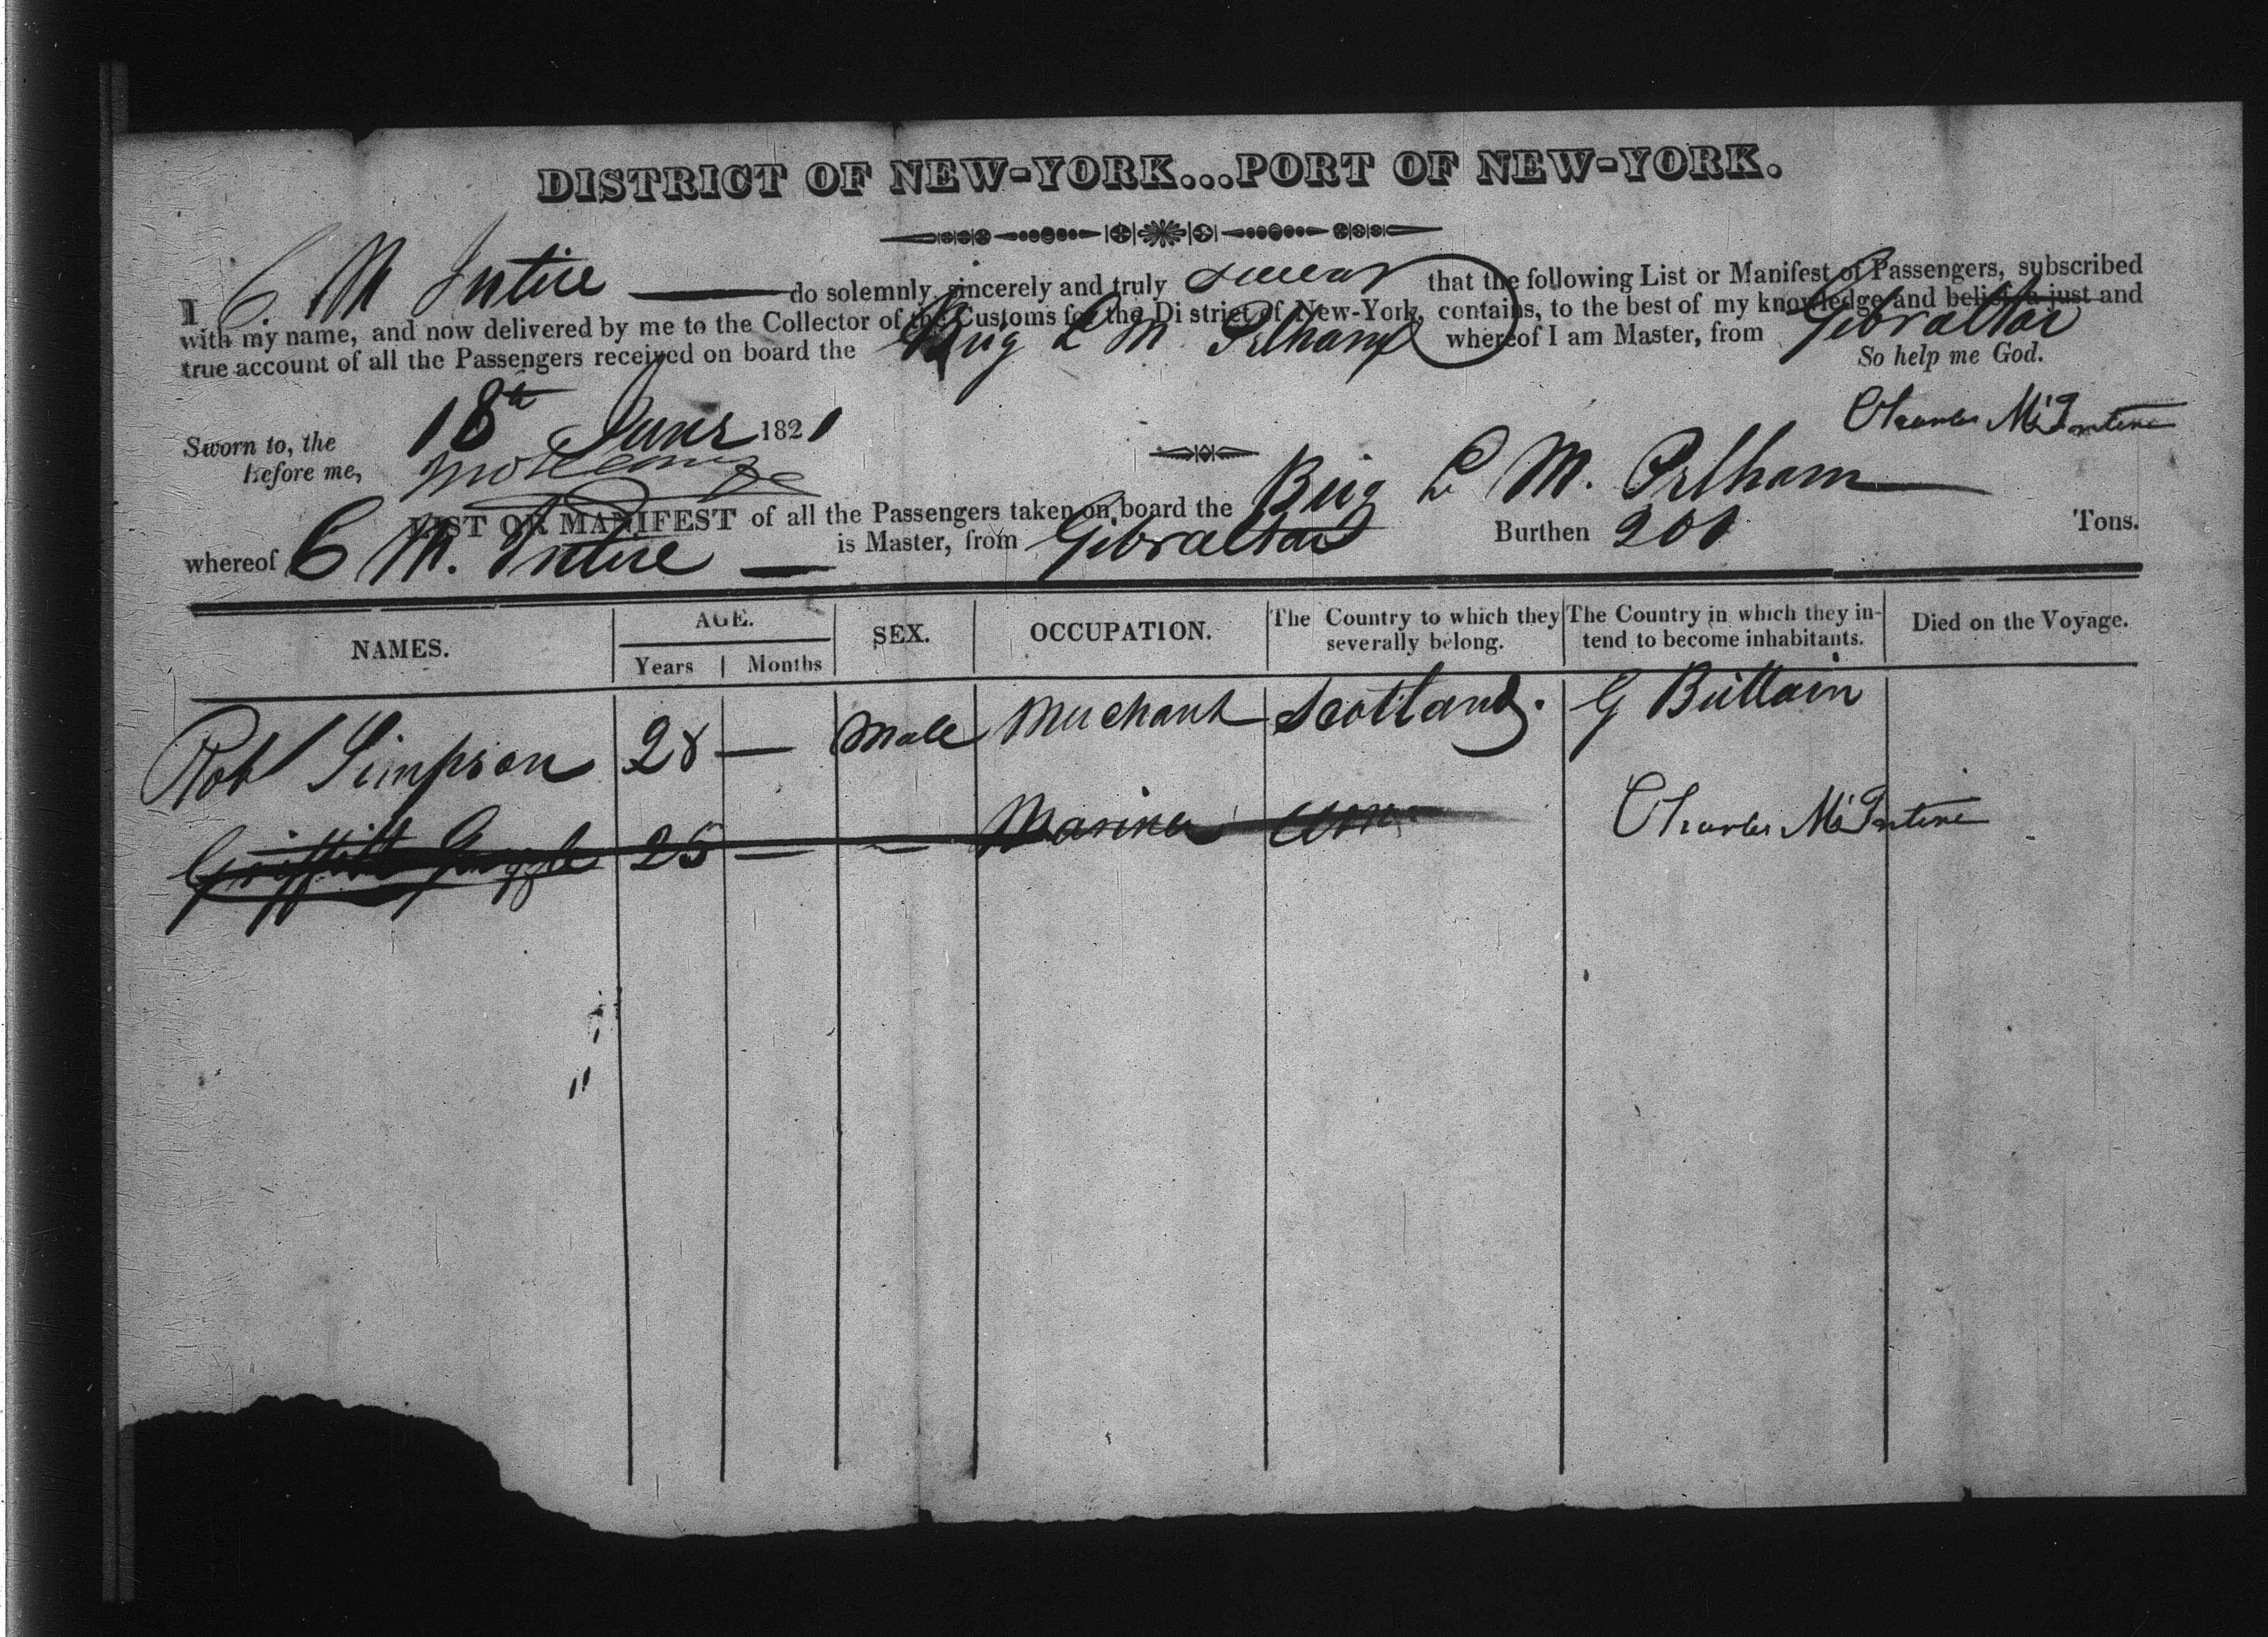 DISTRICT OF NEW-YORK...PORT OF NEW-YORK.
I C. M Intire do solemnly, sincerely and truly swear that the following List or Manifest of Passengers, subscribed
with my name, and now delivered by me to the Collector of the Customs for the District of New-York, contains, to the best of my knowledge and belief, a just and
true account of all the Passengers received on board the Brig L M Pelham whereof I am Master, from Gibraltar
So help me God.
Charles McIntire
Sworn to, the 18th June 1821
before me,
LIST OR MANIFEST of all the Passengers taken on board the Brig L M. Pelham
whereof C M. Intire is Master, from Gibraltar Burthen 201 Tons.
NAMES. AGE. SEX. OCCUPATION. The Country to which they severally belong. The Country in which they intend to become inhabitants. Died on the Voyage.
Years Months
Rob Simpson 28 — Male Merchant Scotland. G Brittain
Griffith 25 — — Mariner
Charles McIntire